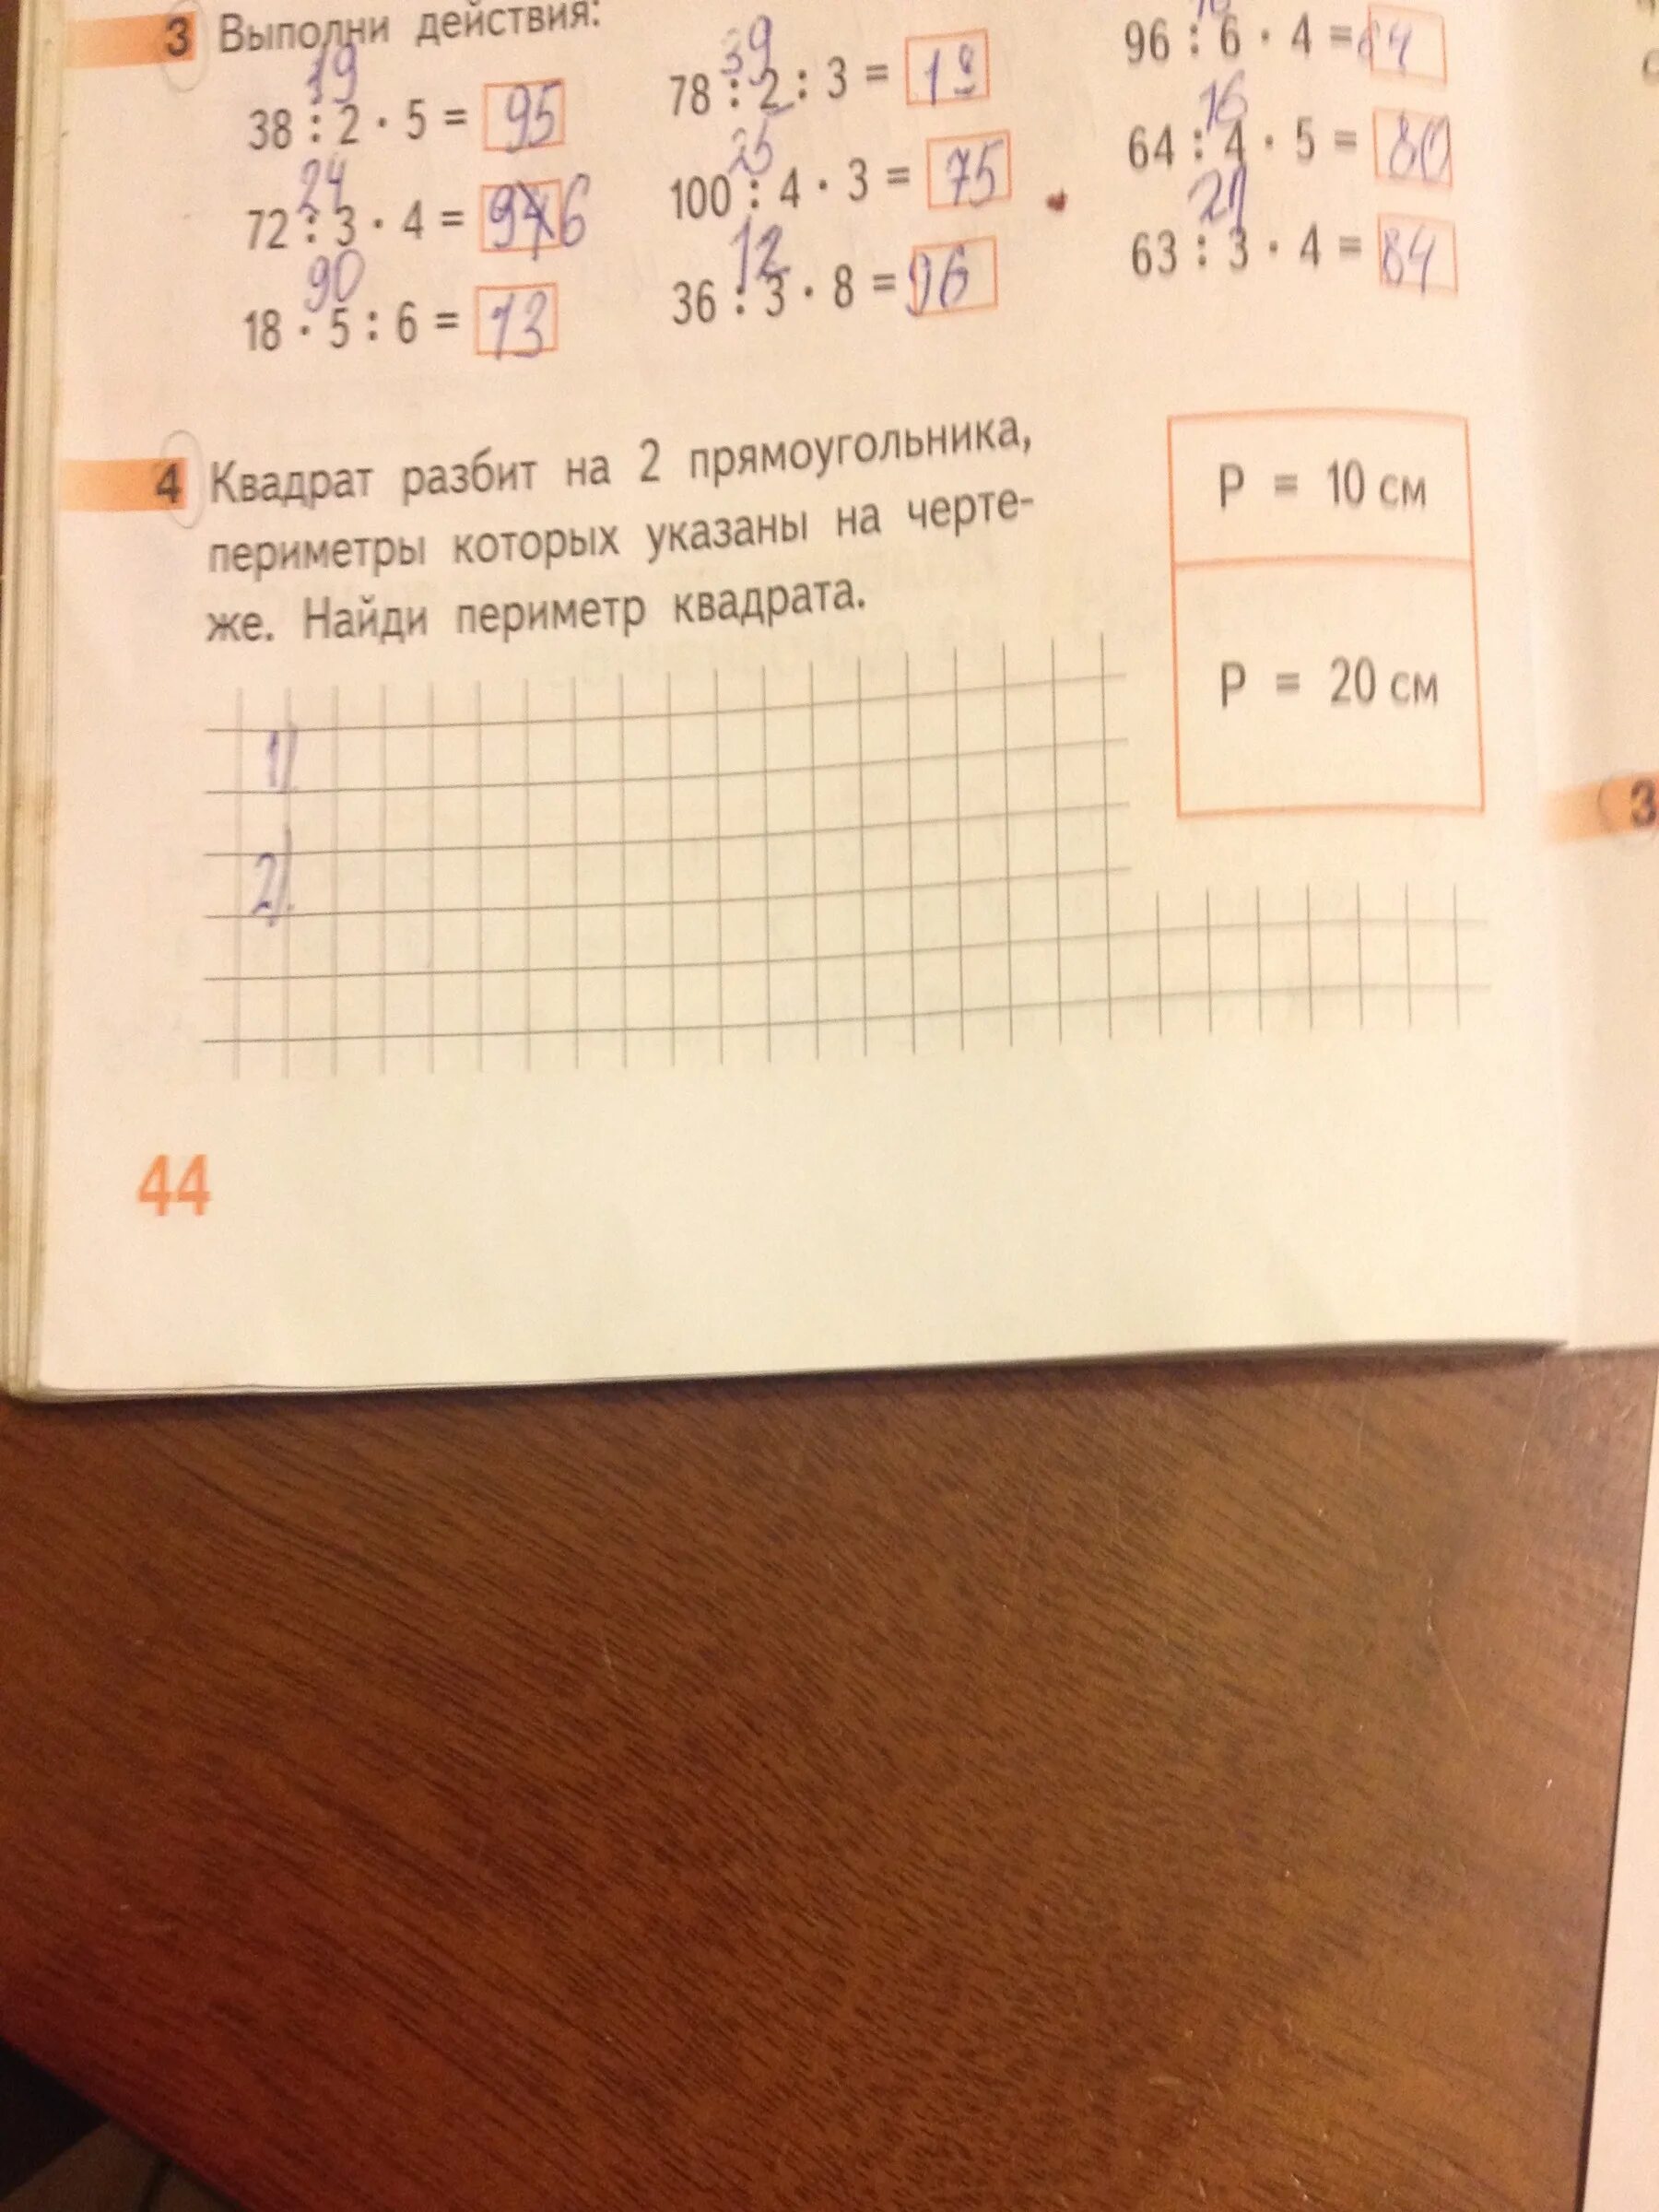 3 Выполни действия:
19
38 : 2 · 5 = 95
24
72 : 3 · 4 = 946
90
18 · 5 : 6 = 13
39
78 : 2 : 3 = 13
25
100 : 4 · 3 = 75
12
36 : 3 · 8 = 96
96 : 6 · 4 = 64
16
64 : 4 · 5 = 80
21
63 : 3 · 4 = 84
4 Квадрат разбит на 2 прямоугольника,
периметры которых указаны на черте-
же. Найди периметр квадрата.
P = 10 см
P = 20 см
1)
2)
44
3